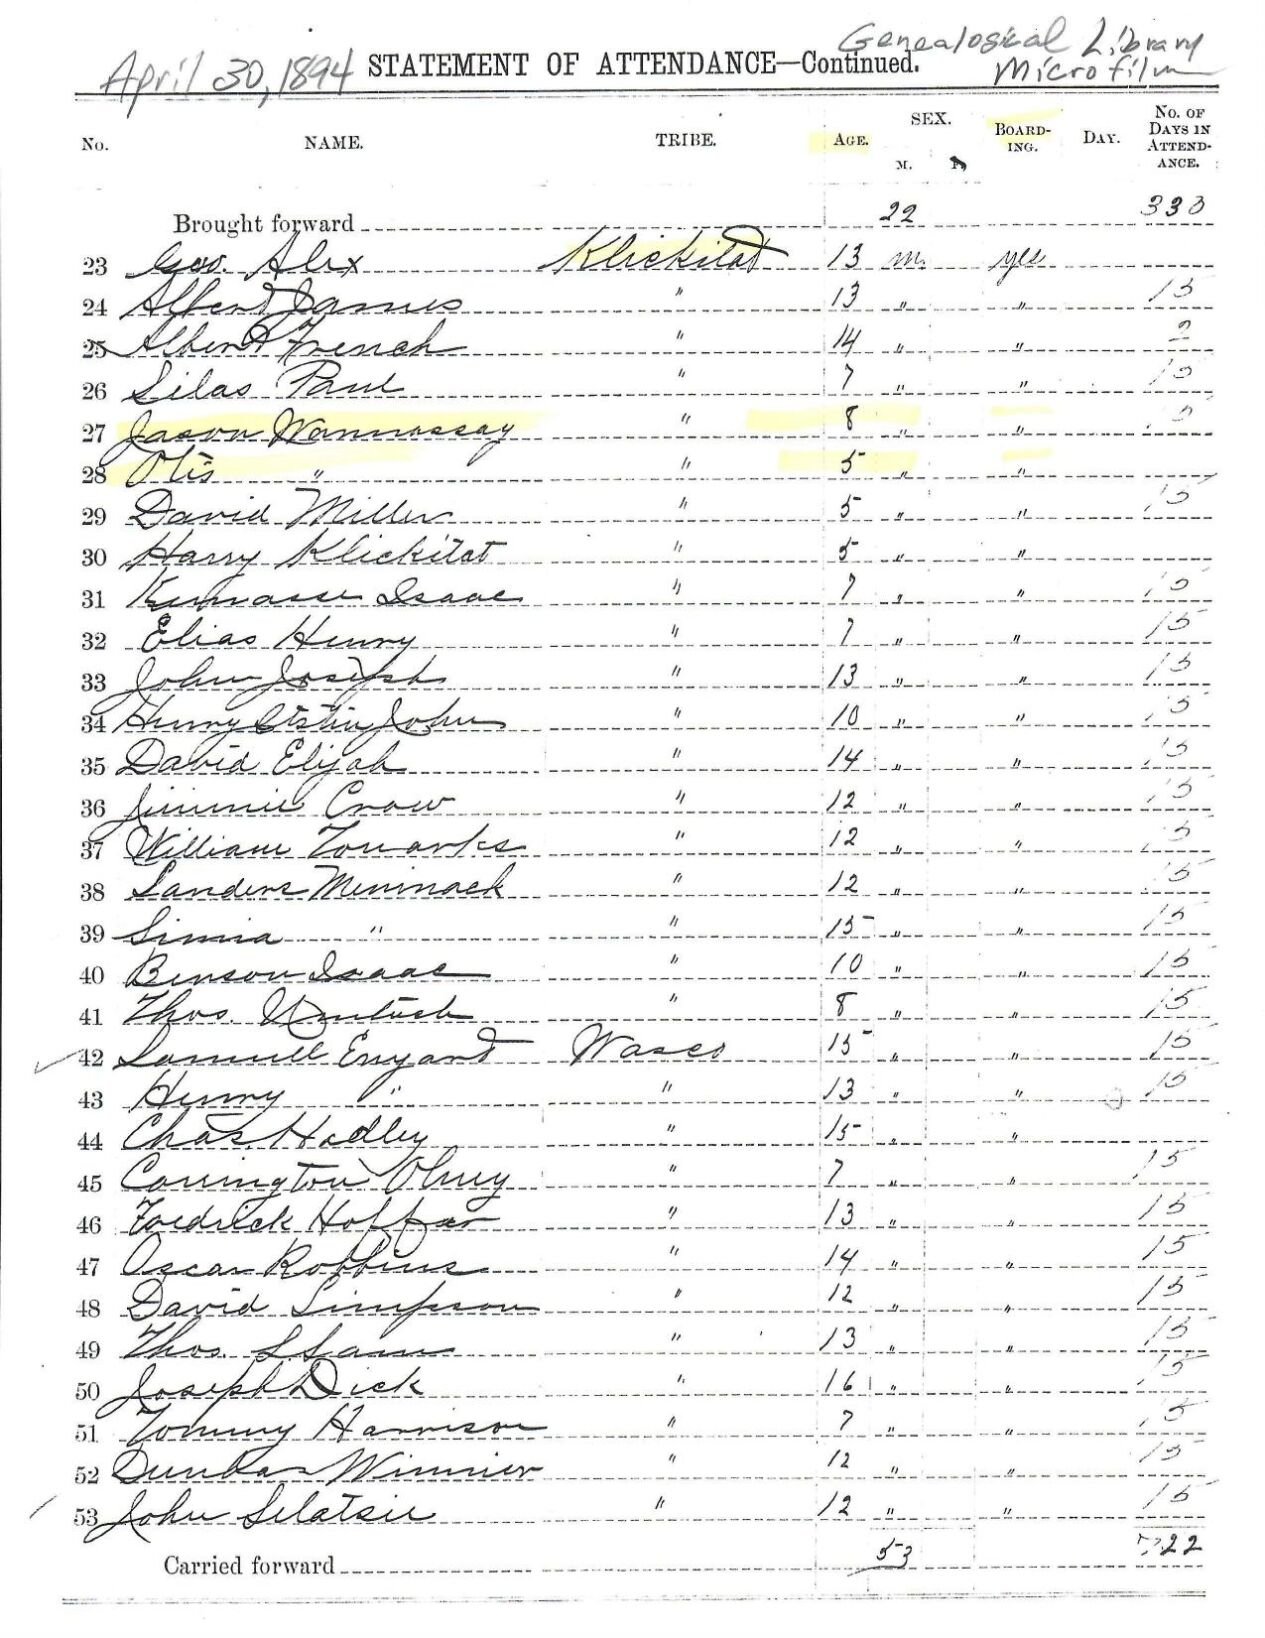 April 30, 1894 STATEMENT OF ATTENDANCE—Continued. Genealogical Library Microfilm
No. NAME. TRIBE. AGE. SEX. M. BOARDING. DAY. No. OF DAYS IN ATTENDANCE.
Brought forward 22 333
23 Geo. Alex Klickitat 13 m. yes
24 Albert James " 13 " " 15
25 Albert French " 14 " " 2
26 Silas Paul " 7 " " 15
27 Jason Wannassay " 8 " " 5
28 Otis " " 5 " "
29 David Miller " 5 " " 15
30 Harry Klickitat " 5 " "
31 Isaac " 7 " " 15
32 Elias Henry " 7 " " 15
33 John Joseph " 13 " " 15
34 Henry John " 10 " " 15
35 David Elijah " 14 " " 15
36 Jimmie Crow " 12 " " 15
37 William " 12 " " 15
38 Sanders Meninack " 12 " " 15
39 Simia " " 15 " " 15
40 Benson Isaac " 10 " " 15
41 Thos. " 8 " " 15
42 Samuell Enyard Wasco 15 " " 15
43 Henry " " 13 " " 15
44 Chas. Hadley " 15 " "
45 Carrington Olney " 7 " " 15
46 Fredrick Hoffar " 13 " " 15
47 Oscar Robbins " 14 " " 15
48 David Simpson " 12 " " 15
49 Thos. " 13 " " 15
50 Joseph Dick " 16 " " 15
51 Tommy Harrison " 7 " " 15
52 Dunbar Winnier " 12 " " 15
53 John Selatsie " 12 " " 15
Carried forward 53 722